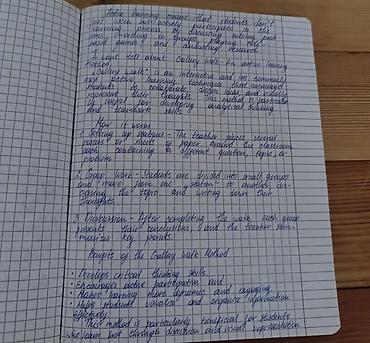 Active learning means that students don't
just listen but actively participate in the
learning process by discussing topics,
working in groups, playing role
based games and conducting research.
I want tell about Gallery Walk. An active learning
Method
"Gallery walk" is an interactive and
most active learning technique that encourages
students to collaborate, design ideas, and visually
represent their thoughts. This method is particularly
useful for developing analytical thinking
and teamwork skills.
How it works
1. Setting up stations - The teacher places several
posters or sheets of paper around the classroom
each containing a different question, topic, or
problem.
2. Group Work - Students are divided into small groups
and move from one "station" to another, dis-
cussing the topic and writing down their
thoughts.
3. Discussion - After completing the walk, each group
presents their conclusions, and the teacher sum-
marizes key points.
Benefits of the Gallery Walk Method
• Develops critical thinking skills.
• Encourages active participation and
• Makes learning more dynamic and engaging
• Helps students and organize information
effectively.
This method is particularly beneficial for students
who learn best through discussion and visual representation